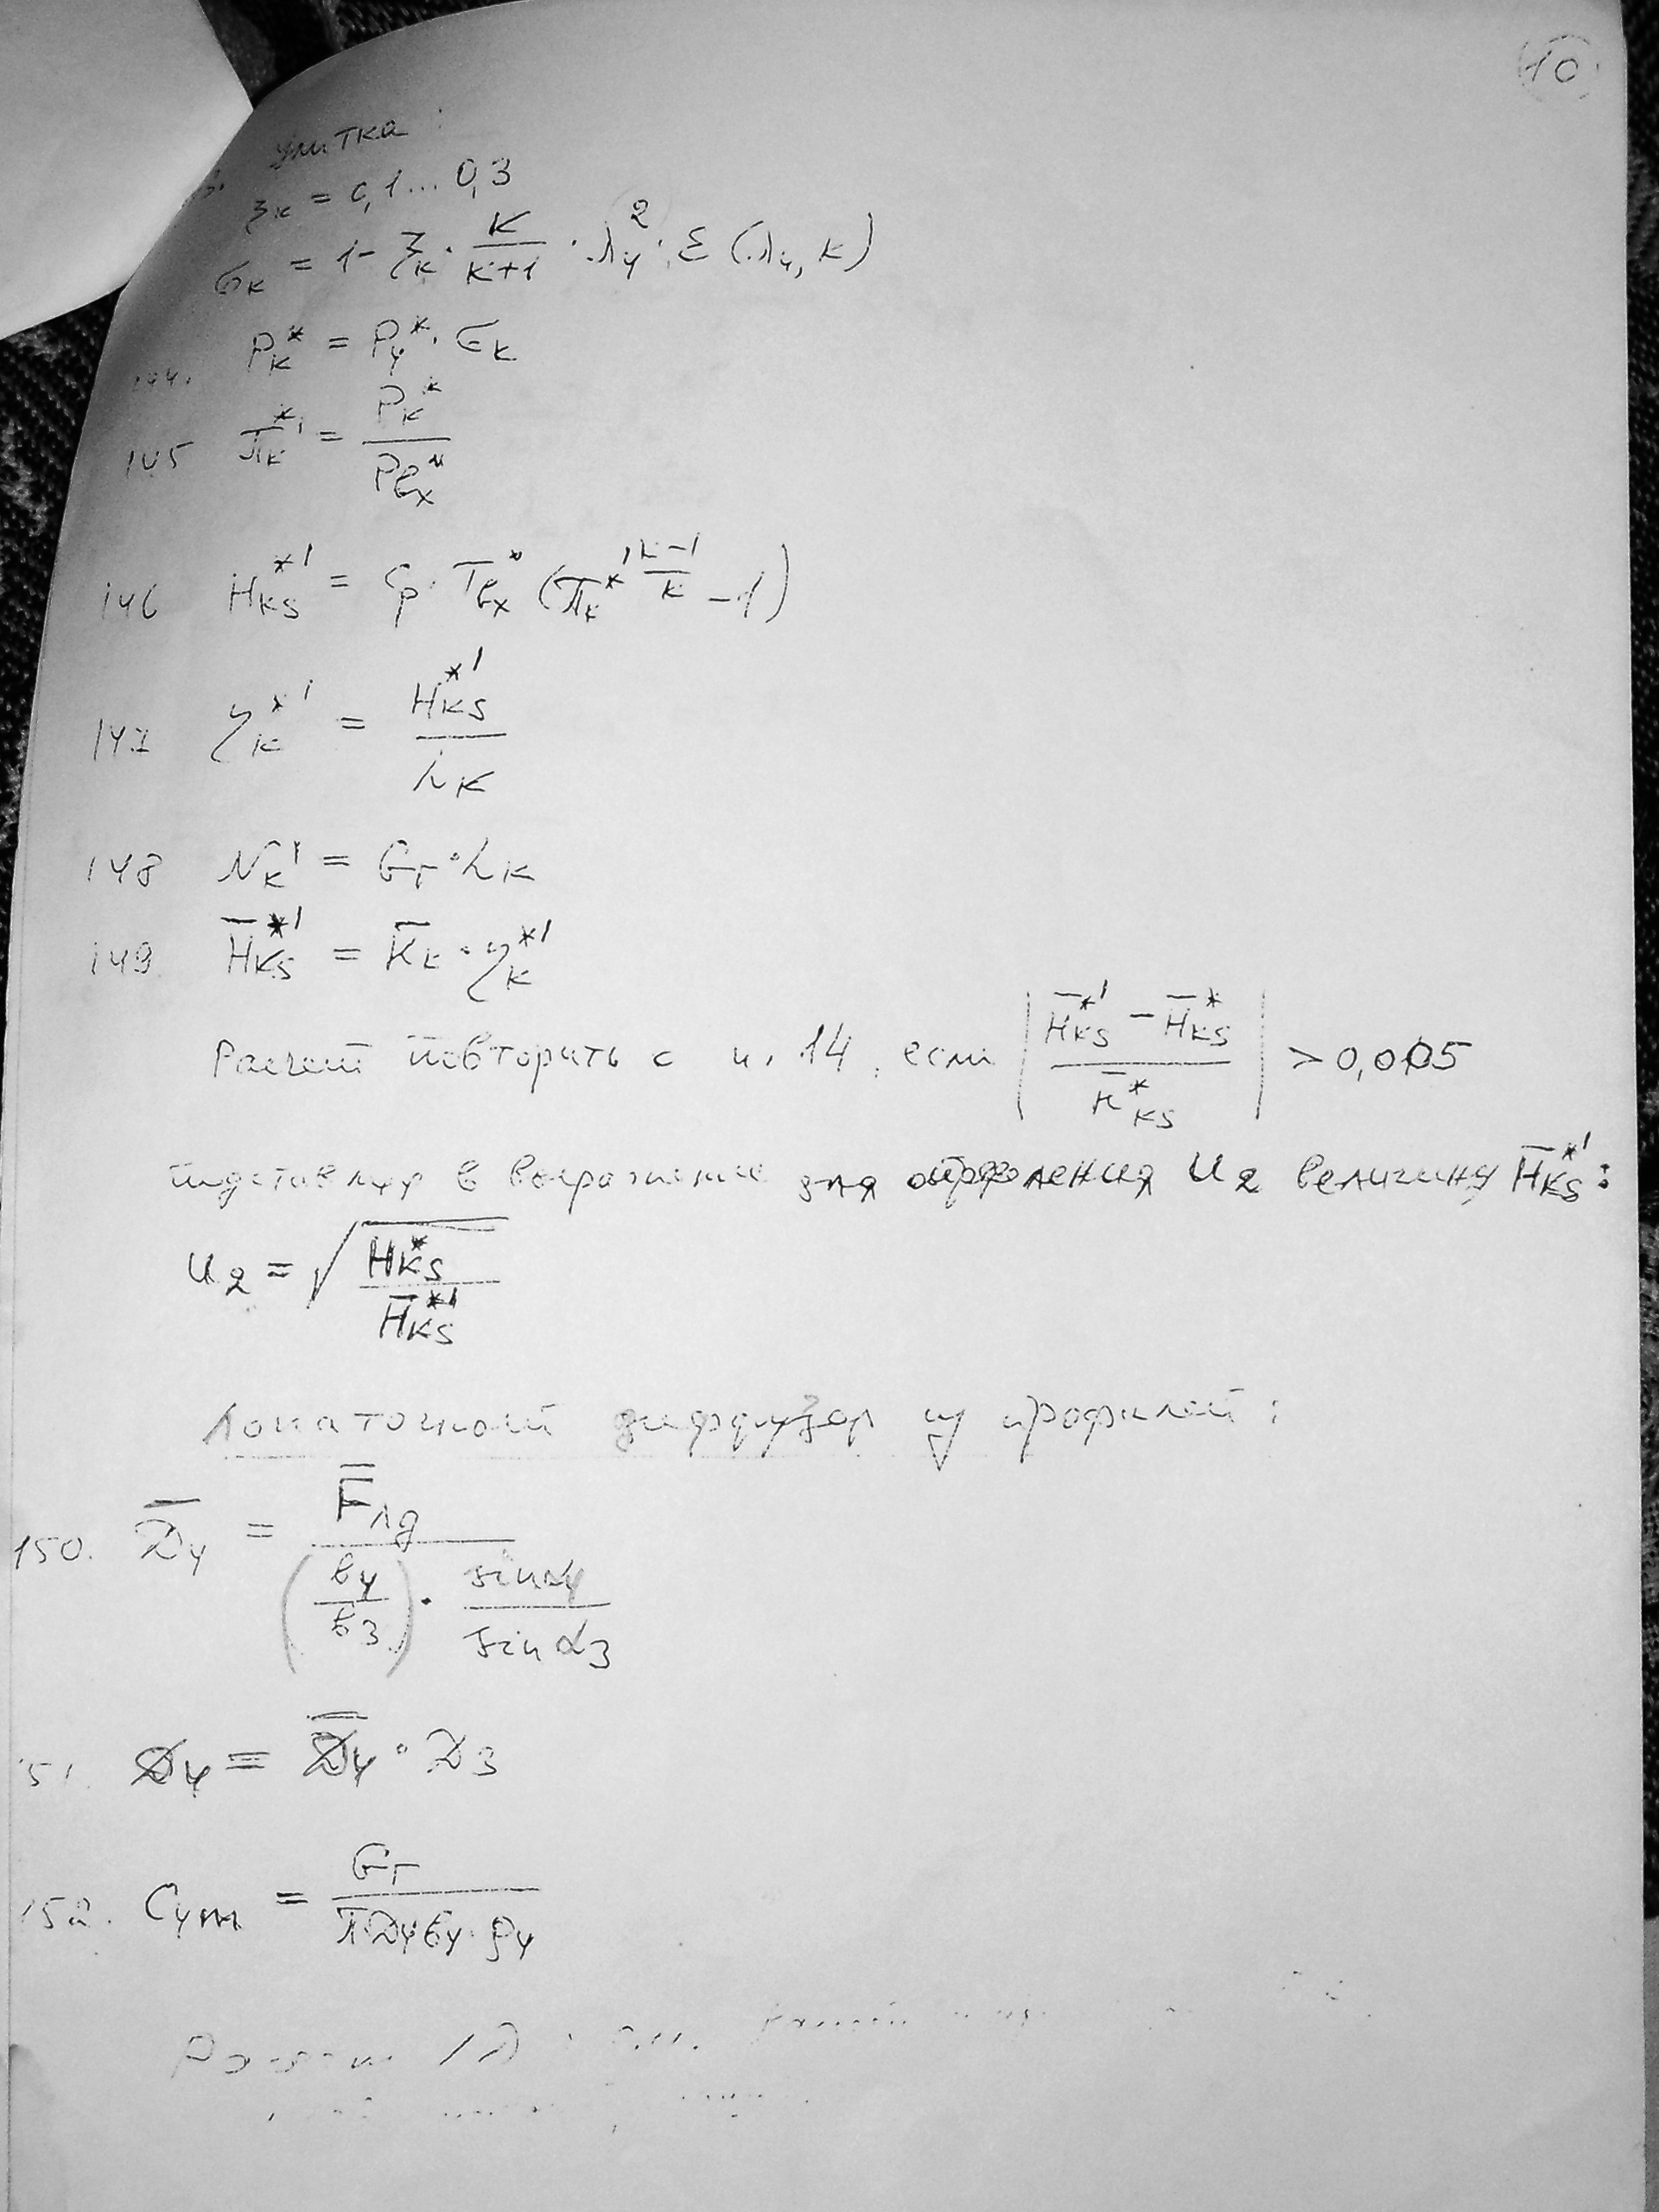 10
улитка:
ξк = 0,1... 0,3
σк = 1 - ξк · k/(k+1) · λ4² · ε(λ4, k)
144. Pк* = P4* · σк
145 πк*' = Pк*/Pвх*
146 Hкs*' = Cp · Tвх* (πк*'^((k-1)/k) - 1)
147 ηк*' = Hкs*'/hк
148 Nк' = Gг · hк
149 H̅кs*' = h̅к · ηк*'
Расчет повторить с п. 14, если |(H̅кs*' - H̅кs*)/H̅кs*| > 0,005
подставляя в выражение для определения u2 величину H̅кs*':
u2 = √(Hкs*/H̅кs*')
Лопаточный диффузор из профилей:
150. D̅4 = F̅лд/((b4/b3) · sinα4/sinα3)
151. D4 = D̅4 · D3
152. C4m = Gг/(πD4b4 · ρ4)